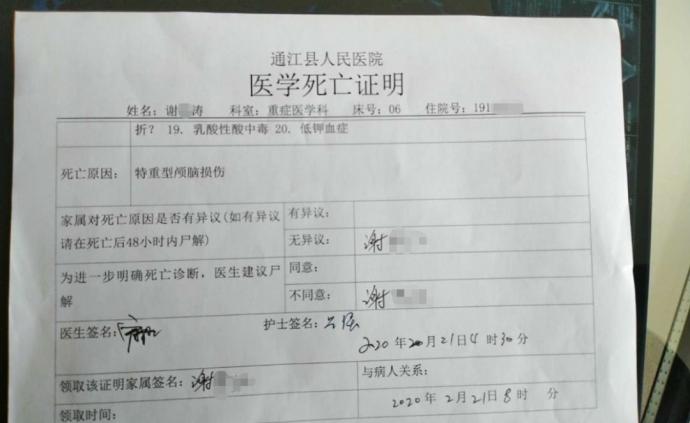 通江县人民医院
医学死亡证明
姓名：谢 涛 科室：重症医学科 床号：06 住院号：191
折？ 19. 乳酸性酸中毒 20. 低钾血症
死亡原因： 特重型颅脑损伤
家属对死亡原因是否有异议(如有异议请在死亡后48小时内尸解)
有异议：
无异议： 谢
为进一步明确死亡诊断，医生建议尸解
同意：
不同意： 谢
医生签名： 护士签名：
2020年2月21日4时30分
领取该证明家属签名： 谢
与病人关系：
2020年2月21日8时 分
领取时间：